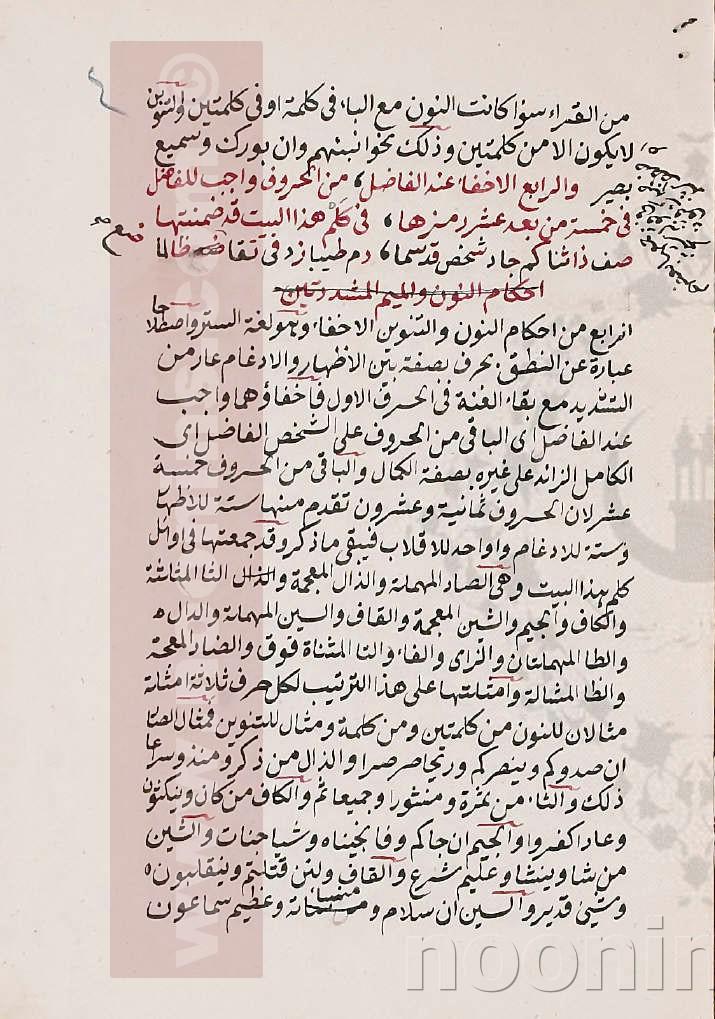 من القراء سوا كانت النون مع الباء في كلمة او في كلمتين والتنوين
لا يكون الا من كلمتين وذلك نحو انبئهم وان بورك وسميع
بصير والرابع الاخفاء عند الفاضل، من الحروف واجب للفاضل
في خمسة من بعد عشر رمزها، في كلم هذا البيت قد ضمنتها
صف ذا ثنا كم جاد شخص قد سما، دم طيبا زد في تقا ضع ظالما
احكام النون والميم المشددتين
الرابع من احكام النون والتنوين الاخفاء وهو لغة الستر واصطلاحا
عبارة عن النطق بحرف بصفة بين الاظهار والادغام عار من
التشديد مع بقاء الغنة في الحرف الاول فاخفاؤهما واجب
عند الفاضل اى الباقي من الحروف على الشخص الفاضل اى
الكامل الزائد على غيره بصفة الكمال والباقي من الحروف خمسة
عشر لان الحروف ثمانية وعشرون تقدم منها ستة للاظهار
وستة للادغام وواحد للاقلاب فيبقى ما ذكر وقد جمعتها في اوائل
كلم هذا البيت وهى الصاد المهملة والذال المعجمة والذال الثا المثلثة
والكاف والجيم والشين المعجمة والقاف والسين المهملة والدال
والطا المهملتان والزاى والفاء والتا المثناة فوق والضاد المعجمة
والظا المشالة وامثلتها على هذا الترتيب لكل حرف ثلاثة امثلة
مثالان للنون من كلمتين ومن كلمة ومثال للتنوين فمثال الصاد
ان صدوكم وينصركم وريحا صرصرا والذال من ذكر ومنذر وسراعا
ذلك والثاء من ثمرة ومنثورا وجميعا ثم والكاف من كان وينكثون
وعادا كفروا والجيم ان جاكم وفانجيناه وشيا جنات والشين
من شا وينشا وعليم شرع والقاف ولئن قتلتم وينقلبون
وشيئ قدير والسين ان سلام ومنساته وعظيم سماعون